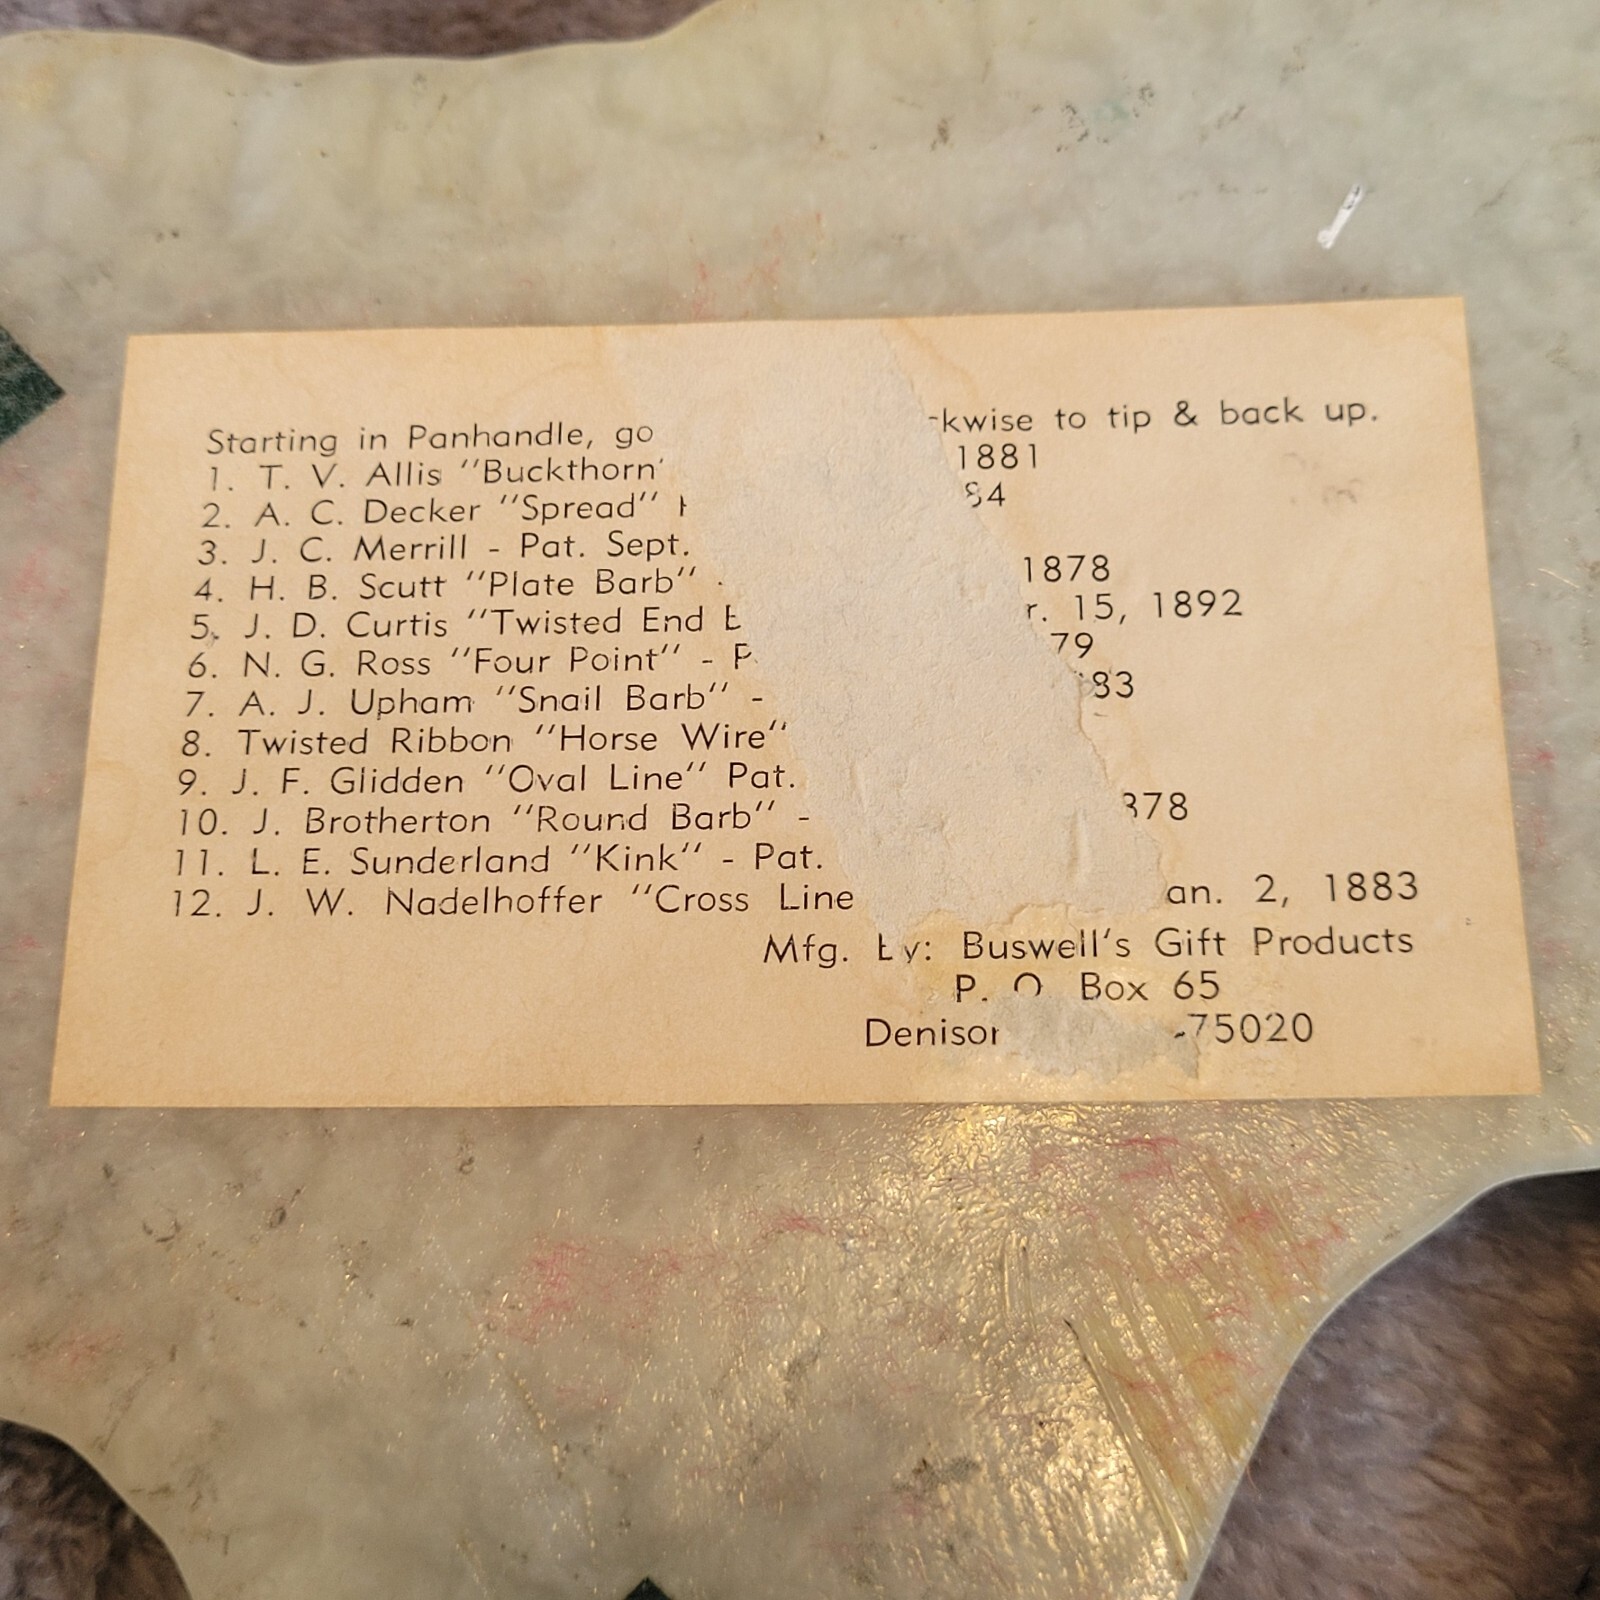 Starting in Panhandle, go kwise to tip & back up.
1. T. V. Allis "Buckthorn 1881
2. A. C. Decker "Spread" 84
3. J. C. Merrill - Pat. Sept.
4. H. B. Scutt "Plate Barb" 1878
5. J. D. Curtis "Twisted End r. 15, 1892
6. N. G. Ross "Four Point" - P 79
7. A. J. Upham "Snail Barb" - 83
8. Twisted Ribbon "Horse Wire"
9. J. F. Glidden "Oval Line" Pat.
10. J. Brotherton "Round Barb" - 878
11. L. E. Sunderland "Kink" - Pat.
12. J. W. Nadelhoffer "Cross Line an. 2, 1883
Mfg. by: Buswell's Gift Products
P. O. Box 65
Denison -75020